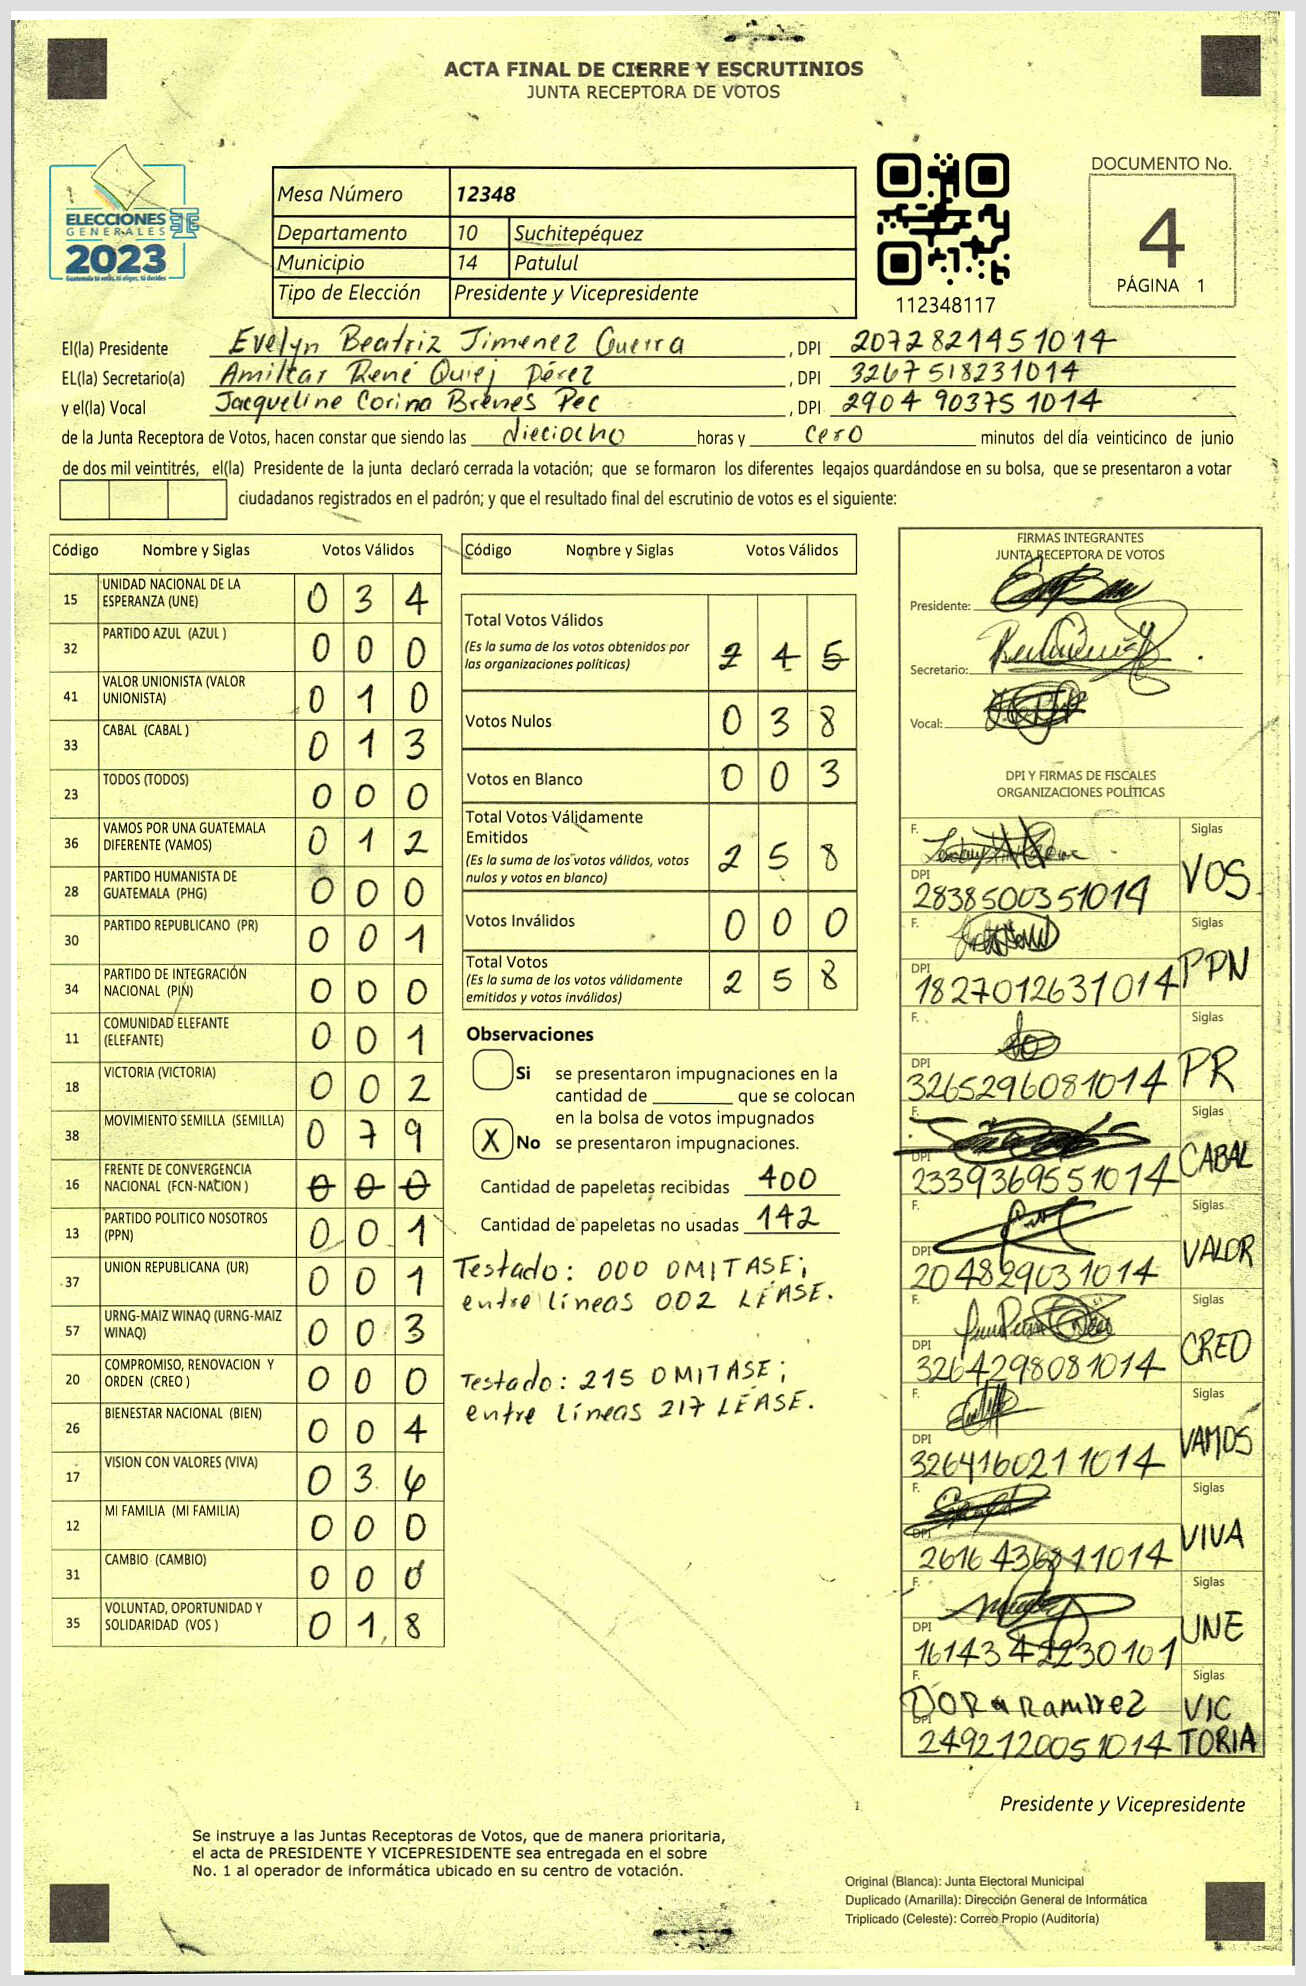 ACTA FINAL DE CIERRE Y ESCRUTINIOS
JUNTA RECEPTORA DE VOTOS
ELECCIONES
GENERALES
2023
Guatemala tú votas, tú eliges, tú decides
Mesa Número 12348
Departamento 10 Suchitepéquez
Municipio 14 Patulul
Tipo de Elección Presidente y Vicepresidente
112348117
DOCUMENTO No.
4
PÁGINA 1
El(la) Presidente Evelyn Beatriz Jimenez Guerra , DPI 2072821451014
EL(la) Secretario(a) Amilcar René Quiej Pérez , DPI 3267518231014
y el(la) Vocal Jacqueline Corina Brenes Pec , DPI 2904903751014
de la Junta Receptora de Votos, hacen constar que siendo las dieciocho horas y cero minutos del día veinticinco de junio
de dos mil veintitrés, el(la) Presidente de la junta declaró cerrada la votación; que se formaron los diferentes legajos guardándose en su bolsa, que se presentaron a votar
ciudadanos registrados en el padrón; y que el resultado final del escrutinio de votos es el siguiente:
Código Nombre y Siglas Votos Válidos
15 UNIDAD NACIONAL DE LA ESPERANZA (UNE) 0 3 4
32 PARTIDO AZUL (AZUL ) 0 0 0
41 VALOR UNIONISTA (VALOR UNIONISTA) 0 1 0
33 CABAL (CABAL ) 0 1 3
23 TODOS (TODOS) 0 0 0
36 VAMOS POR UNA GUATEMALA DIFERENTE (VAMOS) 0 1 2
28 PARTIDO HUMANISTA DE GUATEMALA (PHG) 0 0 0
30 PARTIDO REPUBLICANO (PR) 0 0 1
34 PARTIDO DE INTEGRACIÓN NACIONAL (PIN) 0 0 0
11 COMUNIDAD ELEFANTE (ELEFANTE) 0 0 1
18 VICTORIA (VICTORIA) 0 0 2
38 MOVIMIENTO SEMILLA (SEMILLA) 0 7 9
16 FRENTE DE CONVERGENCIA NACIONAL (FCN-NACION ) 0 0 0
13 PARTIDO POLITICO NOSOTROS (PPN) 0 0 1
37 UNION REPUBLICANA (UR) 0 0 1
57 URNG-MAIZ WINAQ (URNG-MAIZ WINAQ) 0 0 3
20 COMPROMISO, RENOVACION Y ORDEN (CREO ) 0 0 0
26 BIENESTAR NACIONAL (BIEN) 0 0 4
17 VISION CON VALORES (VIVA) 0 3 6
12 MI FAMILIA (MI FAMILIA) 0 0 0
31 CAMBIO (CAMBIO) 0 0 0
35 VOLUNTAD, OPORTUNIDAD Y SOLIDARIDAD (VOS ) 0 1 8
Código Nombre y Siglas Votos Válidos
Total Votos Válidos
(Es la suma de los votos obtenidos por
las organizaciones políticas) 2 4 5
Votos Nulos 0 3 8
Votos en Blanco 0 0 3
Total Votos Válidamente
Emitidos
(Es la suma de los votos válidos, votos
nulos y votos en blanco) 2 5 8
Votos Inválidos 0 0 0
Total Votos
(Es la suma de los votos válidamente
emitidos y votos inválidos) 2 5 8
Observaciones
Si se presentaron impugnaciones en la
cantidad de ________ que se colocan
en la bolsa de votos impugnados
X No se presentaron impugnaciones.
Cantidad de papeletas recibidas 400
Cantidad de papeletas no usadas 142
Testado: 000 OMITASE;
entre líneas 002 LÉASE.
Testado: 215 OMITASE;
entre líneas 217 LÉASE.
FIRMAS INTEGRANTES
JUNTA RECEPTORA DE VOTOS
Presidente:
Secretario:
Vocal:
DPI Y FIRMAS DE FISCALES
ORGANIZACIONES POLÍTICAS
F. Siglas
DPI 2838500351014 VOS
F. Siglas
DPI 1827012631014 PPN
F. Siglas
DPI 3265296081014 PR
F. Siglas
DPI 2339369551014 CABAL
F. Siglas
DPI 204829031014 VALOR
F. Siglas
DPI 3264298081014 CREO
F. Siglas
DPI 3264160211014 VAMOS
F. Siglas
DPI 2616436811014 VIVA
F. Siglas
DPI 1614342230101 UNE
F. DORA RamIrez Siglas
DPI 2492120051014 VICTORIA
Presidente y Vicepresidente
Se instruye a las Juntas Receptoras de Votos, que de manera prioritaria,
el acta de PRESIDENTE Y VICEPRESIDENTE sea entregada en el sobre
No. 1 al operador de informática ubicado en su centro de votación.
Original (Blanca): Junta Electoral Municipal
Duplicado (Amarilla): Dirección General de Informática
Triplicado (Celeste): Correo Propio (Auditoría)